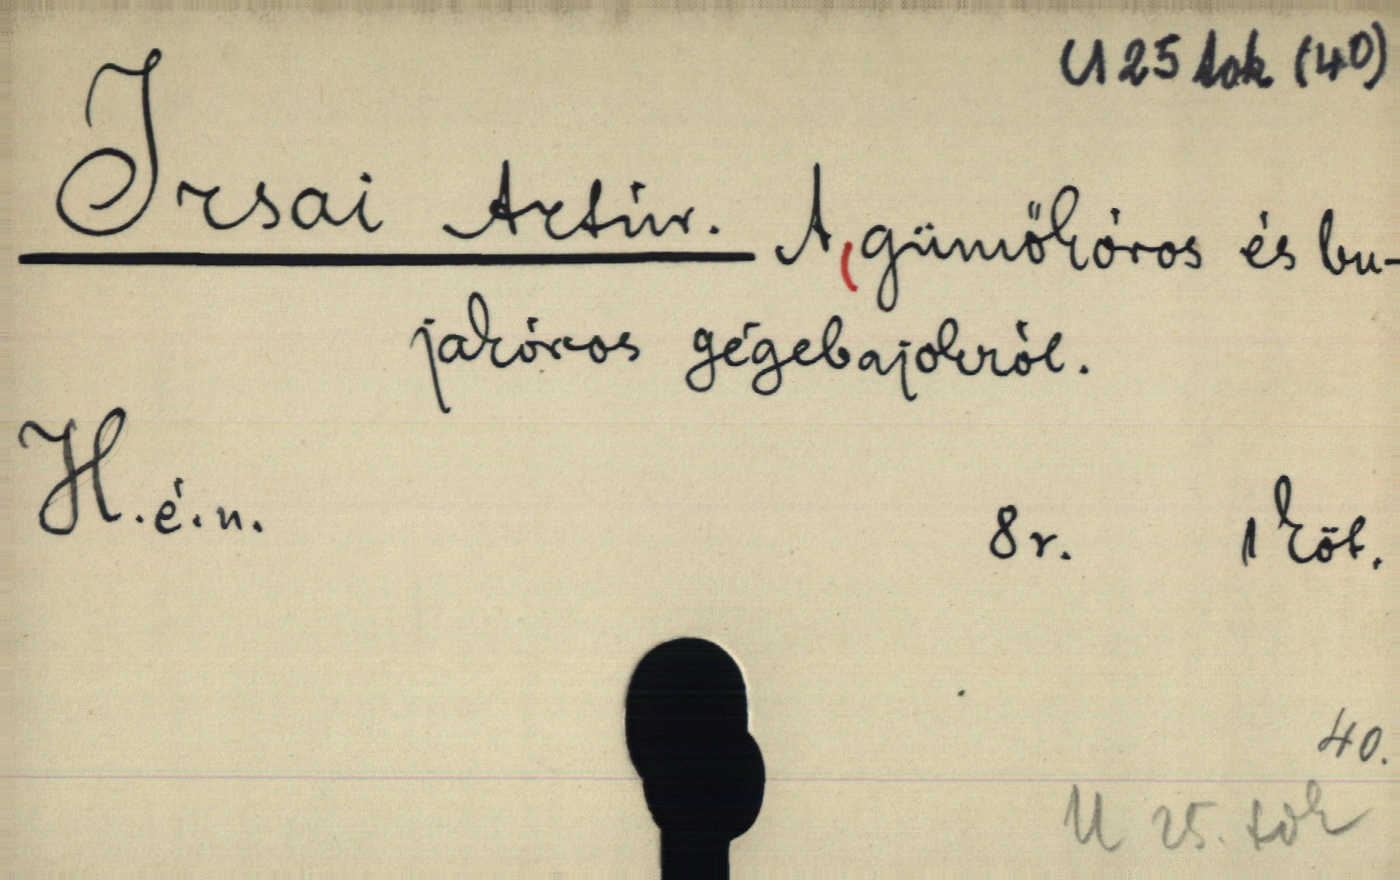 U 25 tok (40)
Irsai Artúr. A gümőkóros és bu-
jakóros gégebajokról.
H. é. n. 8r. 1 köt.
40.
U 25. tok